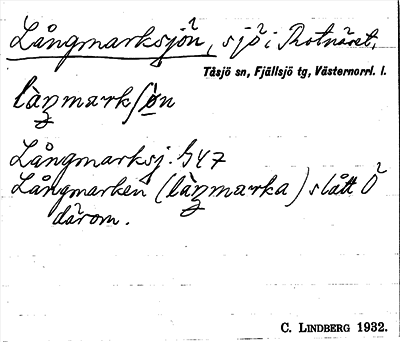 Långmarksjön, sjö i Rotnäset.
Tåsjö sn, Fjällsjö tg, Västernorrl. l.
làŋmarkʃøn
Långmarksj. G47
Långmarken (làŋmarka) slått Ö
därom.
C. LINDBERG 1932.